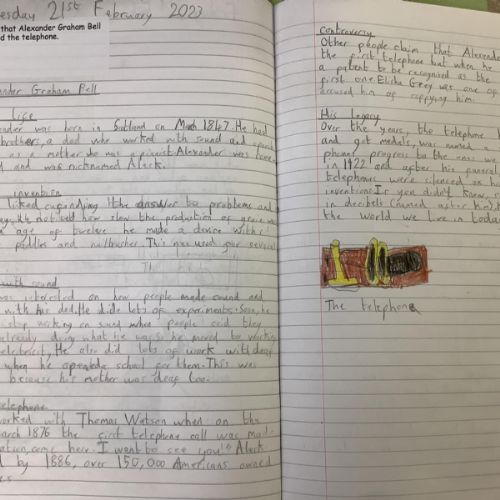 esday 21st February 2023
that Alexander Graham Bell
d the telephone.
ander Graham Bell
Life
ander was born in Scotland on March 1847. He had
brothers, a dad who worked with sound and speech
as a mother who was a pianist. Alexander was home
d and was nicknamed Aleck.
invention
liked expanding the answer to problems and
he noticed how slow the production of
age of twelve he made a device with
paddles and nailbrushes. This was used for several
Th
with sound
was interested on how people made sound and
with his dad. He did lots of experiments. Soon, he
stop working on sound when people said they
already doing what he was so he moved to working
electricity. He also did lots of work with deaf
when he opened a school for them. This was
because his mother was deaf too.
telephone
worked with Thomas Watson when on the
March 1876 the first telephone call was mad
come here. I want to see you". Aleck
d by 1886, over 150,000 Americans owned
es
Controversy
Other people claim that Alexande
the first telephone but when he
a patent to be recognised as the
first one. Elisha Grey was one of
accused him of copying him.
His legacy
Over the years, the telephone
and got medals, was named a
phones progress to the ones we
in 1922 and after his funeral
telephones were silenced in h
invention. If you didn't know,
in decibels (named after him)
the world we live in toda
The telephone